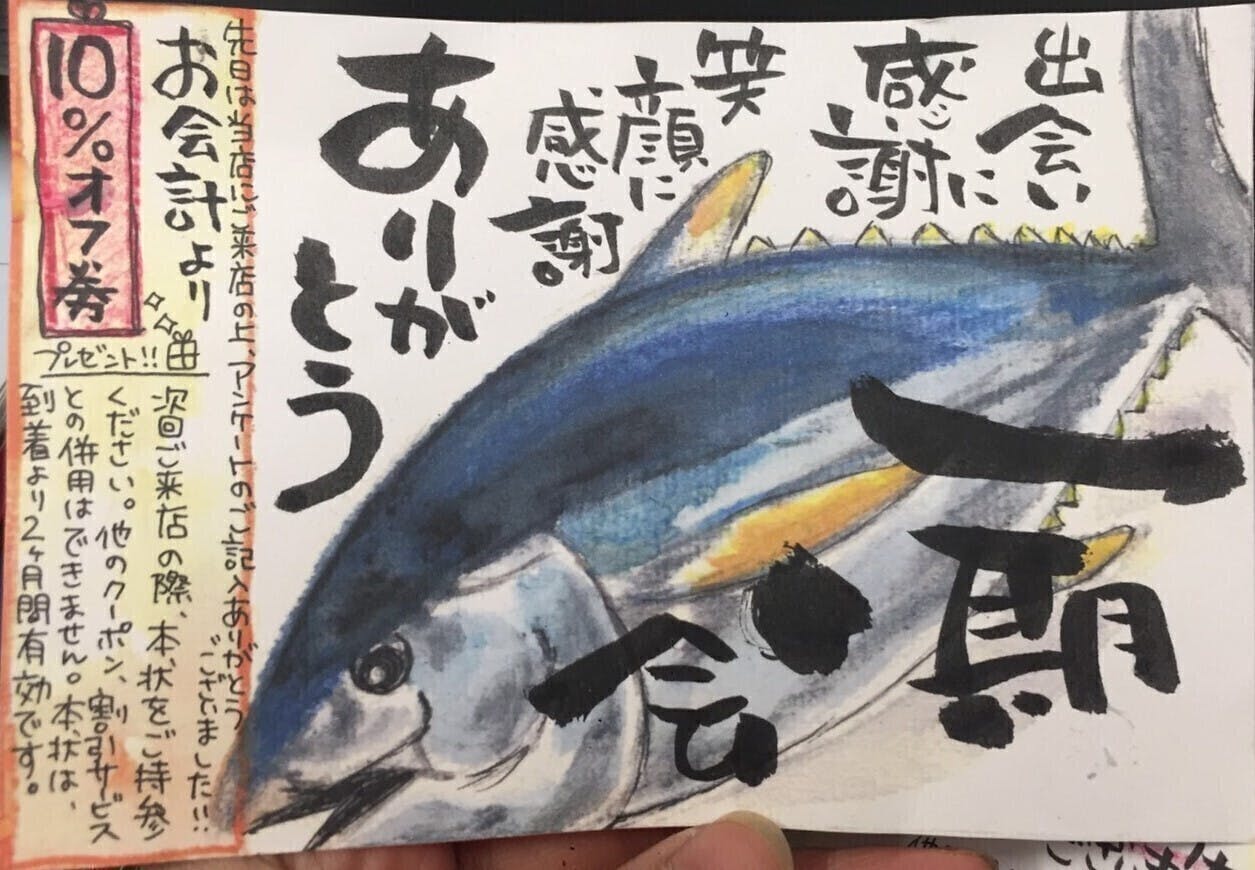 出会いに
感謝。
笑顔に
感謝。
ありがとう
一期一会
先日は当店にご来店の上、アンケートのご記入ありがとう
ございました!!
お会計より
10%オフ券
プレゼント!!
次回ご来店の際、本状をご持参
ください。他のクーポン、割引サービス
との併用はできません。本状は、
到着より2ヶ月間有効です。